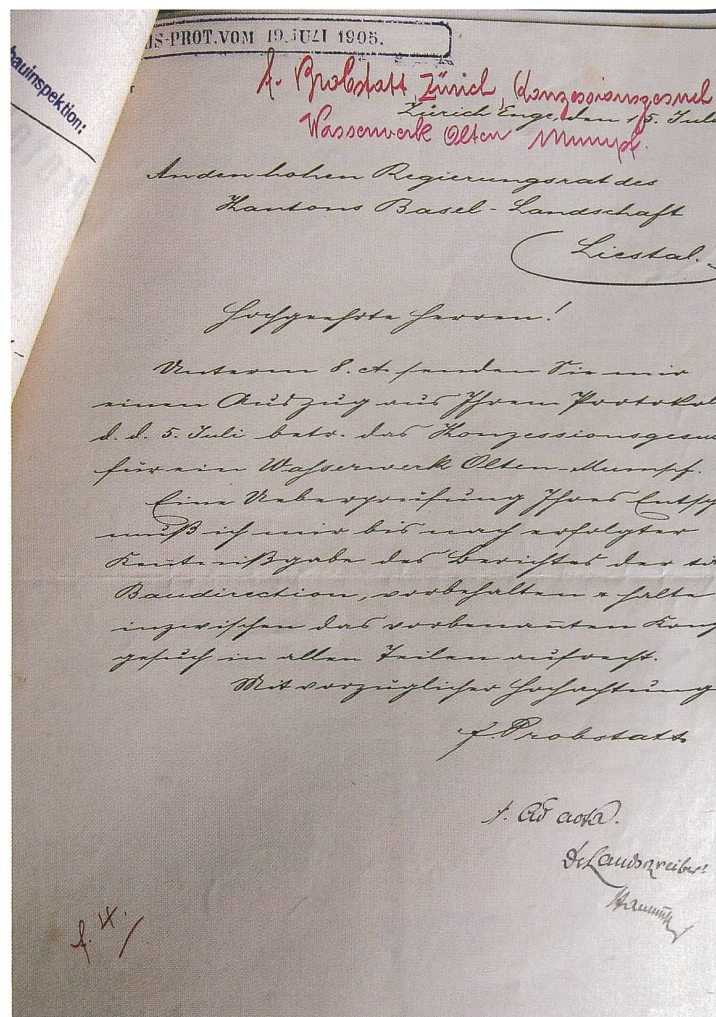 bauinspektion:
S-PROT. VOM 19. JULI 1905.
f. Probstatt Zürich, Konzessionsgesuch
Zürich Enge, den 15. Juli
Wasserwerk Olten Mumpf.
An den hohen Regierungsrat des
Kantons Basel-Landschaft
Liestal.
Hochgeehrte Herren!
Unterm 8. ct. senden Sie mir
einen Auszug aus Ihrem Protokol
d. d. 5. Juli betr. das Konzessionsgesu
für ein Waßerwerk Olten-Mumpf.
Eine Ueberprüfung Ihres Entsch
muß ich mir bis nach erfolgter
Kentnißgabe des Berichtes der
Baudirection, vorbehalten & halte
inzwischen das vorbenannten Konz
gesuch in allen Teilen aufrecht.
Mit vorzüglicher Hochachtung
f. Probstatt
Ad acta.
Landschreiber: